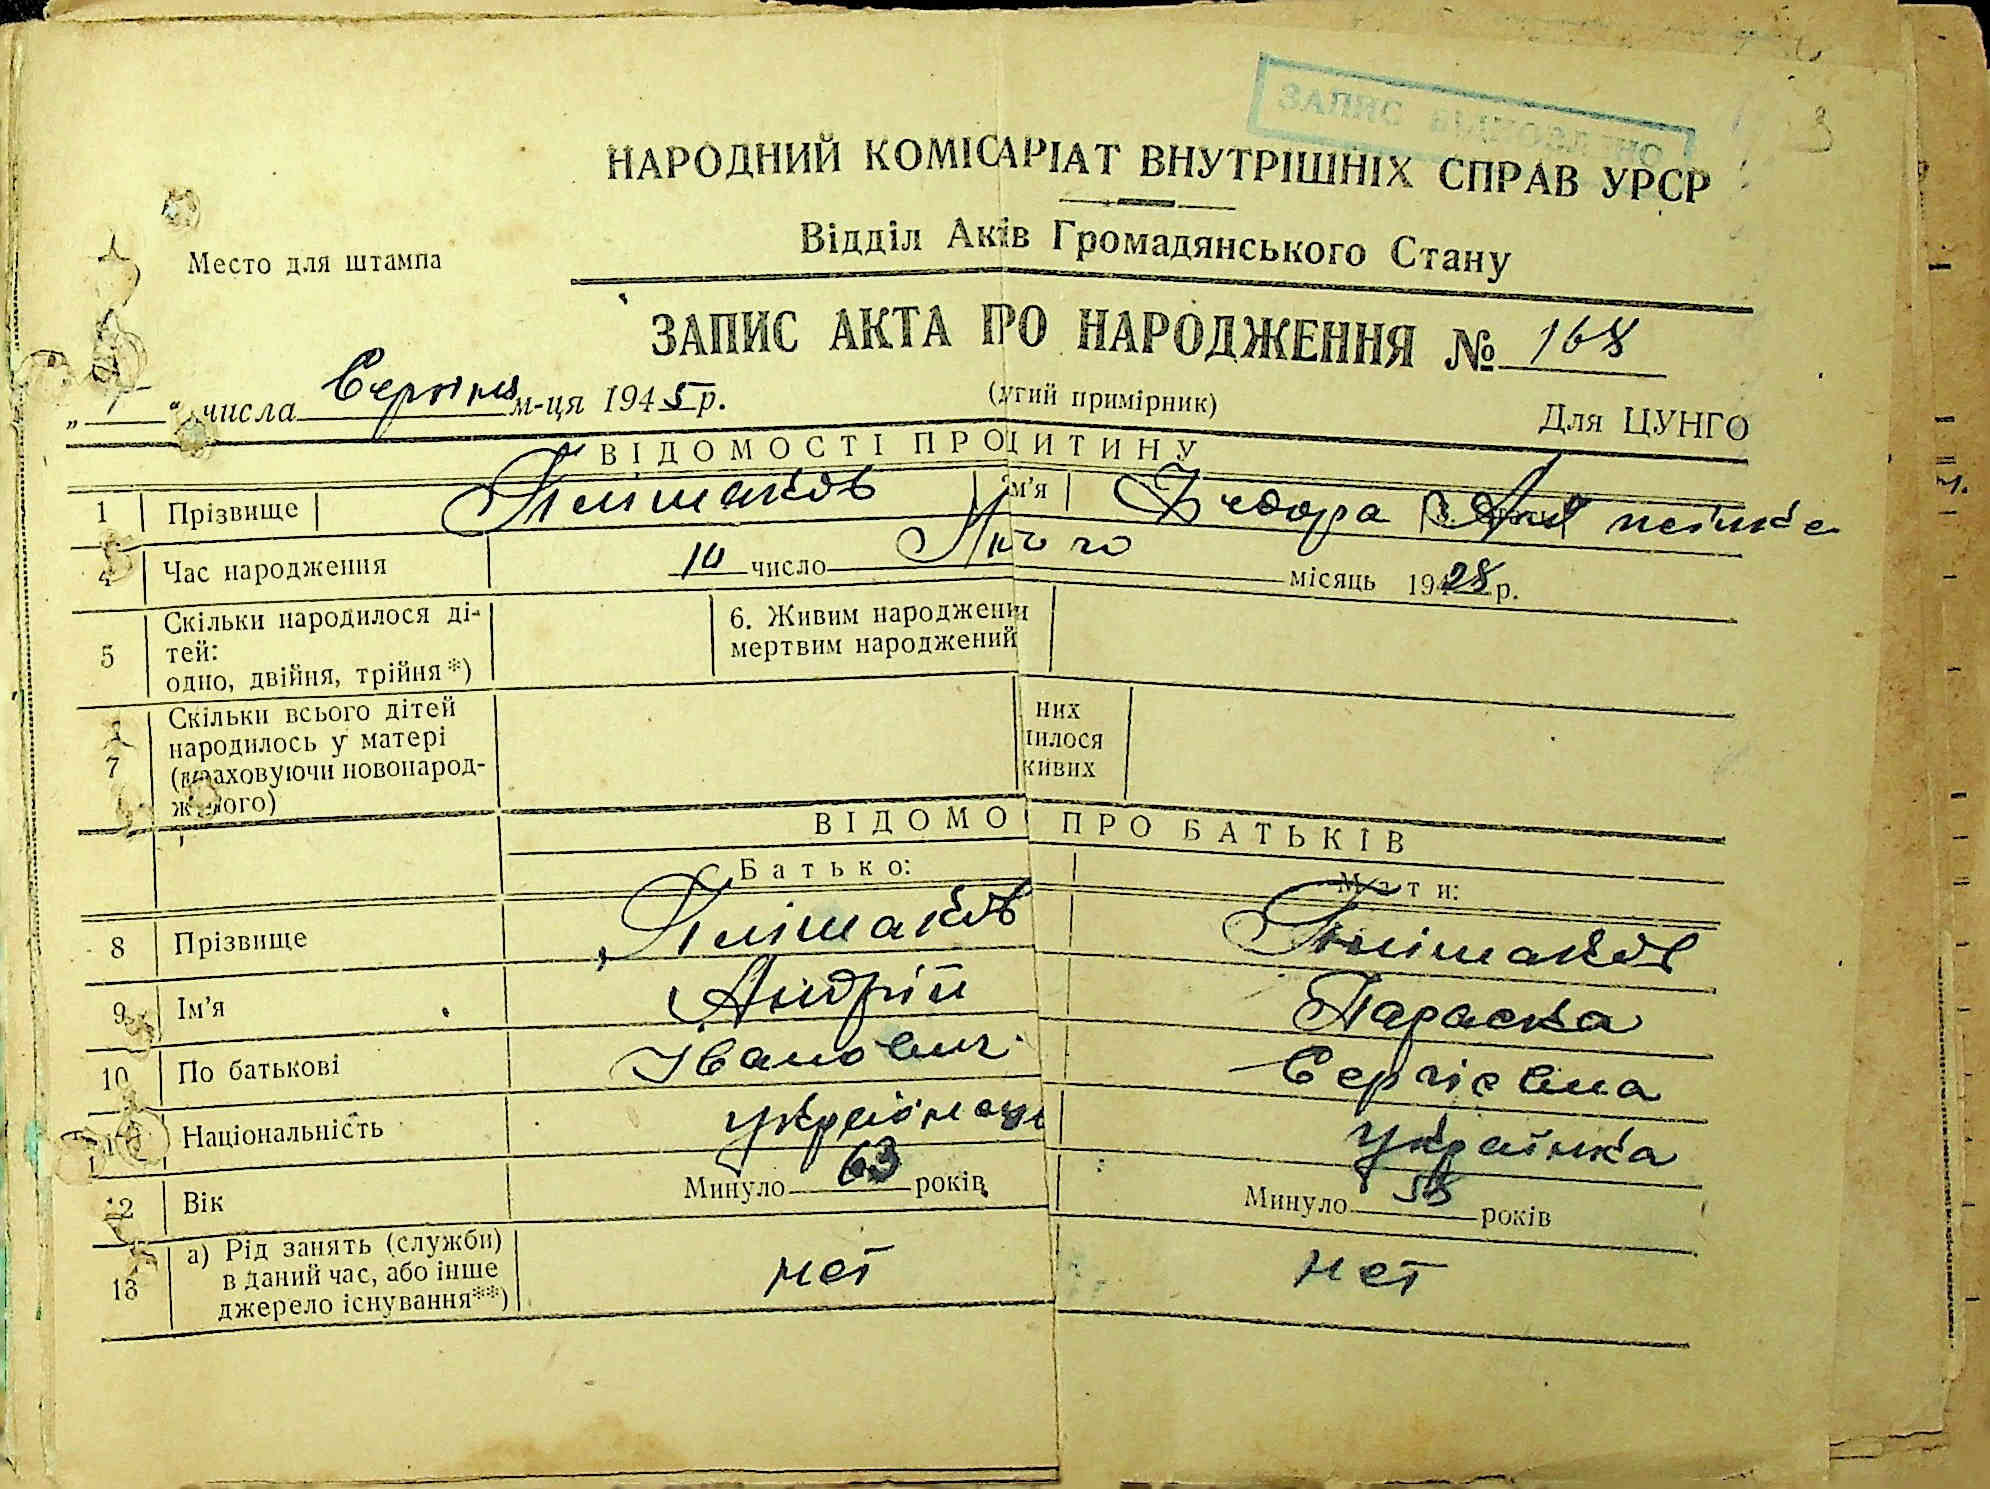 ЗАПИС ВІДНОВЛЕНО
3
НАРОДНИЙ КОМІСАРІАТ ВНУТРІШНІХ СПРАВ УРСР
Место для штампа
Відділ Аків Громадянського Стану
ЗАПИС АКТА ПРО НАРОДЖЕННЯ № 168
„1“ числа Серпня м-ця 1945 р.
(угий примірник)
Для ЦУНГО
ВІДОМОСТІ ПРО ИТИНУ
1 Прізвище Плішаков м'я Федора
4 Час народження 10 число місяць 1928 р.
5 Скільки народилося ді-
тей:
одно, двійня, трійня*)
6. Живим народжени
мертвим народжений
7 Скільки всього дітей
народилось у матері
(враховуючи новонарод-
женого)
них
илося
живих
ВІДОМО ПРО БАТЬКІВ
Батько: Мати:
8 Прізвище Плішаков Плішаков
9 Ім'я Андрій Параска
10 По батькові Іванович Сергієвна
11 Національність українець українка
12 Вік Минуло 63 років Минуло 58 років
13 а) Рід занять (служби)
в даний час, або інше
джерело існування**)
нет нет